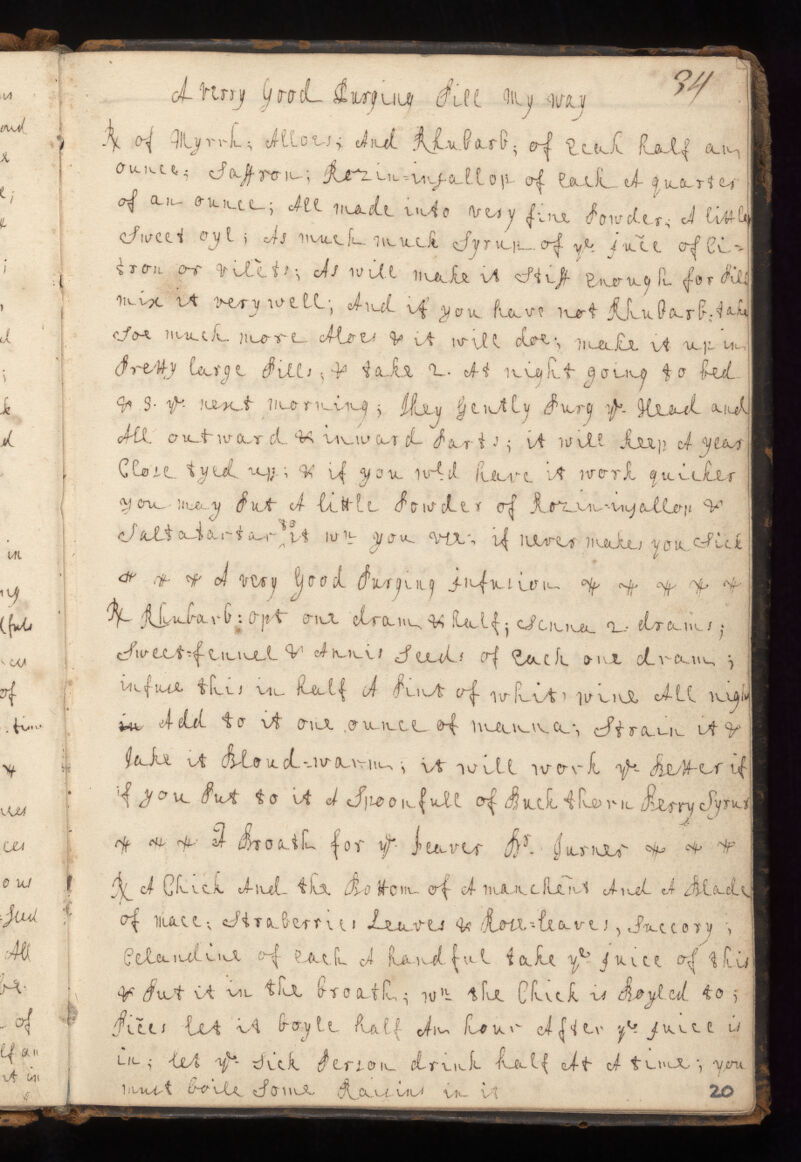 34
A verry Good Purging Pill My way
℞ of Myrrh; Alloes; And Rhubarb; of Eeah half an
ounce; Saffron; Rozin=injallop of Each A quarter
of an ounce; All made into very fine Powder; A little
Sweet oyl; As much much Syrup of ye juice of Ci=
tron or vilets; As will make it Stiff Enough for Pills
mix it very well; And if you have not Rhubarb: take
Soe much more Aloes & it will doe; make it up in
Pretty large Pills; & take 2. At night going to bed
& 3. ye next morning; They Gently Purg ye Head and
All outward & inward Parts; it will keep A year
Close tyed up; & if you wld have it work quicker
you may Put A little Powder of Rozin=injallop &
Saltatartar to it wn you use; it never makes you Sick
A very Good Purging Infusion
℞ Rhubarb: opt one dram & half; Senna 2. drams;
Sweet=fennel & Annis Seeds of Each one dram;
infuse this in half A Pint of white wine All night
in Add to it one ounce of manna; Strain it &
Take it Bloud=warm; it will work ye Better if
if you Put to it A Spoonfull of Buckthorn Berry Syrup
A Broath for ye Feaver Dr. Turner
℞ A Chick And the Bottom of A manchent And A Blade
of mace; Straberries Leaves & Rose=leaves, Succory;
Celandine of each A handful take ye juice of this
& Put it in the broath; wn the Chick is Boyled to;
Pices let it boyle half An hour After ye juice is
in; let ye Sick Person drink half At A time; you
must boile Some Raisins in it
20